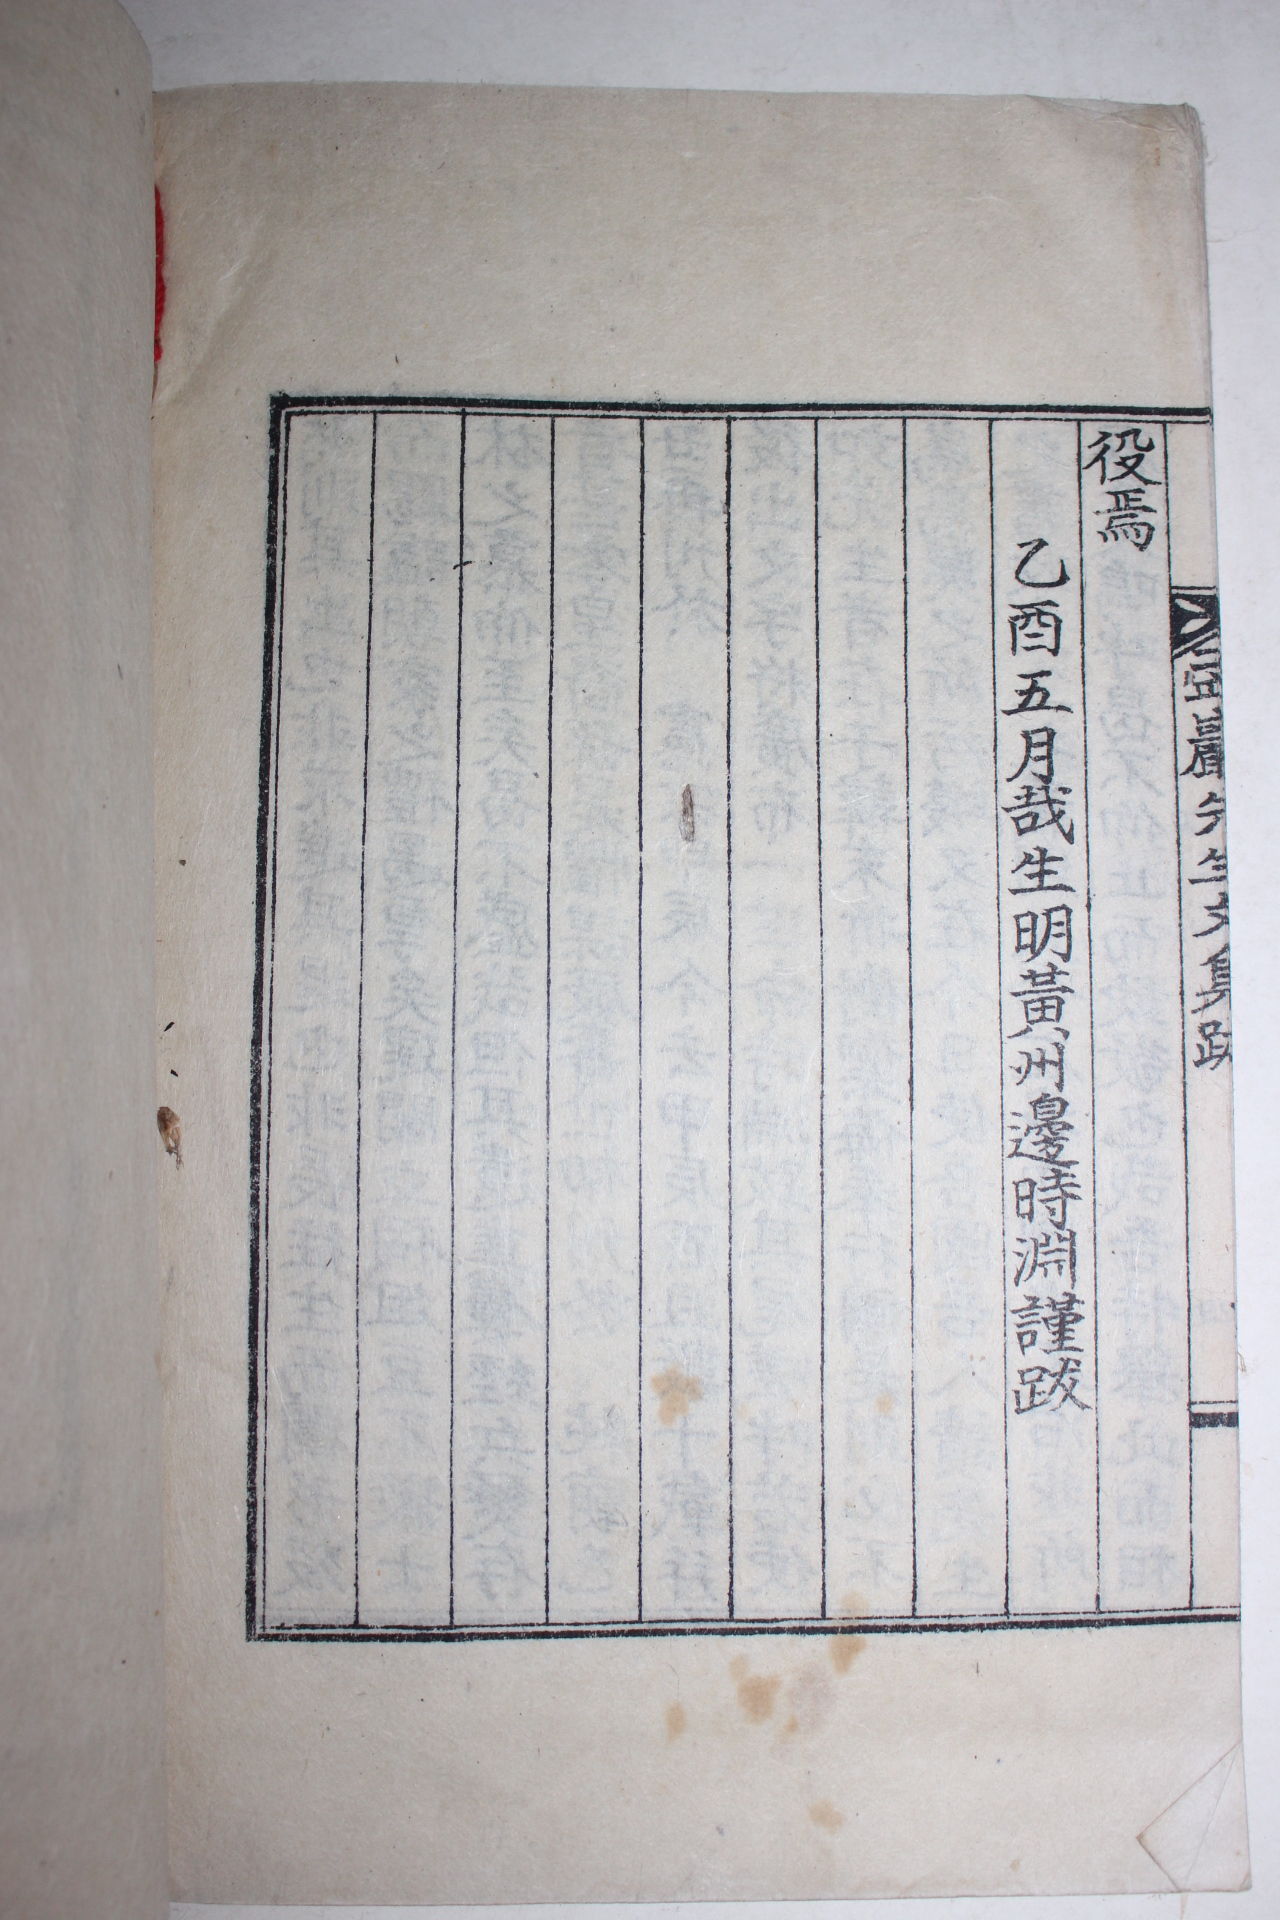 役焉
乙酉五月哉生明黃州邊時淵謹跋
豆巖先生文集跋